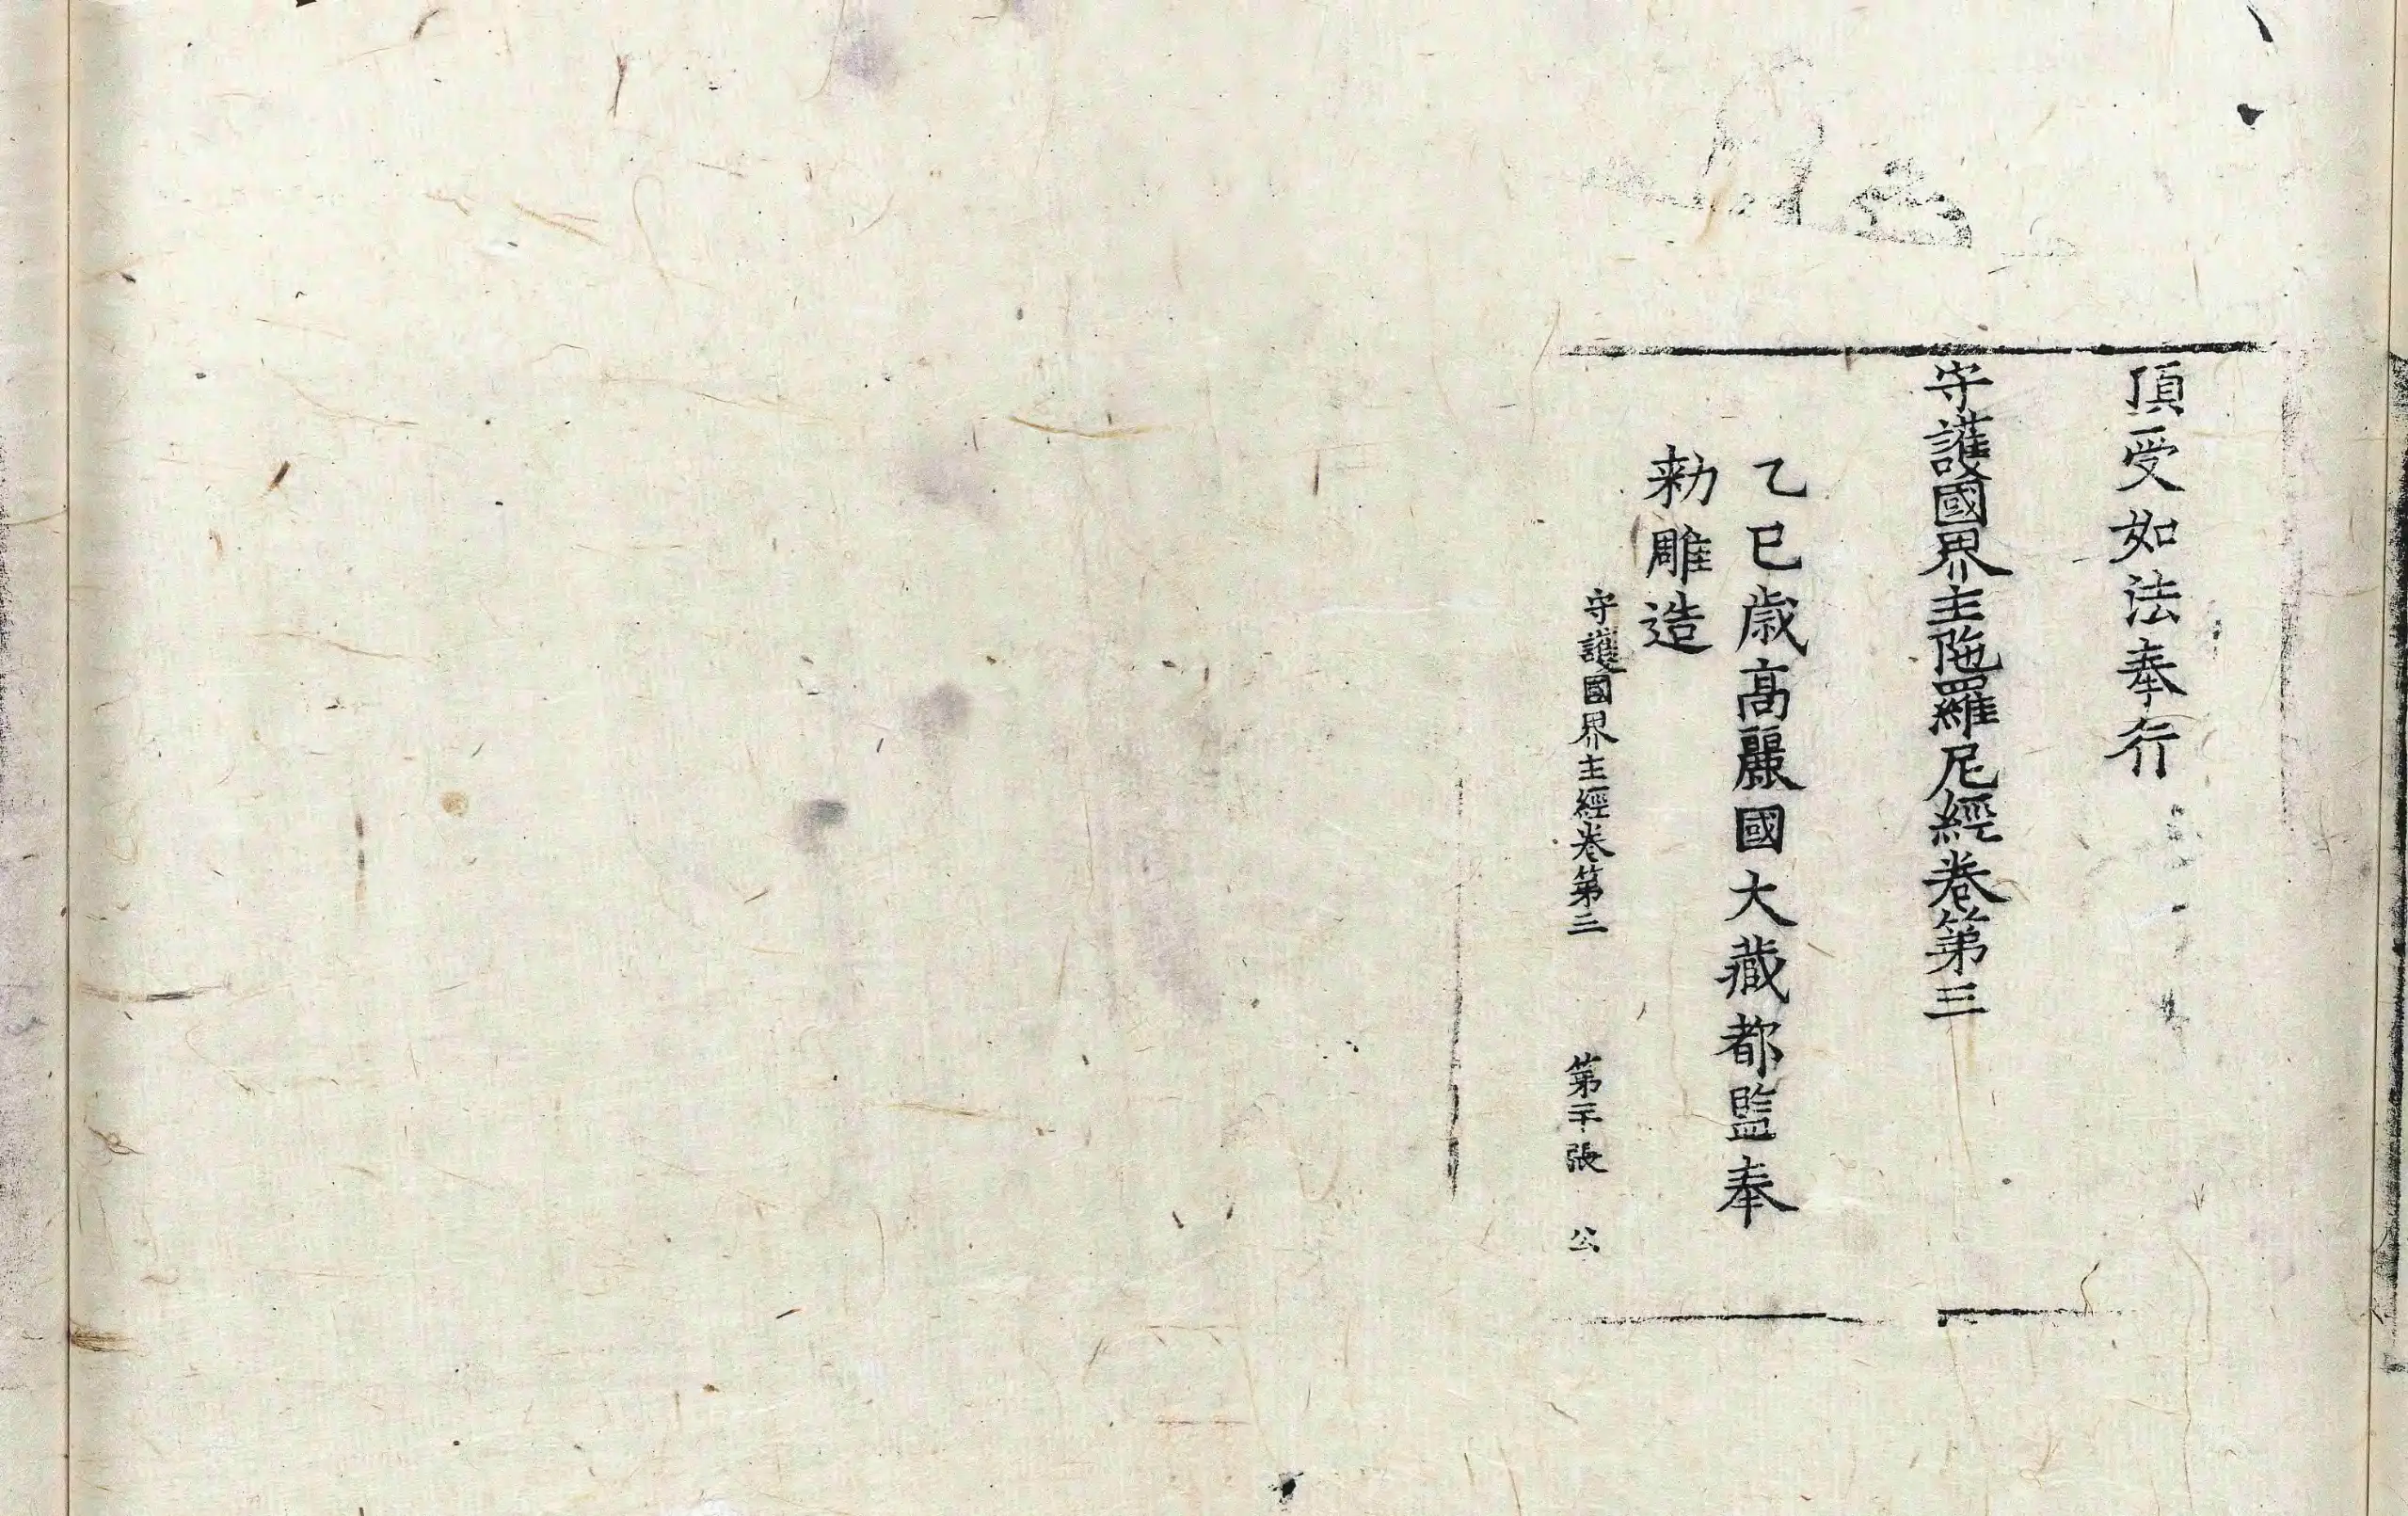 頂受如法奉行
守護國界主陁羅尼經卷第三
乙巳歳高麗國大藏都監奉
勅雕造
守護國界主經卷第三 第二十張 公